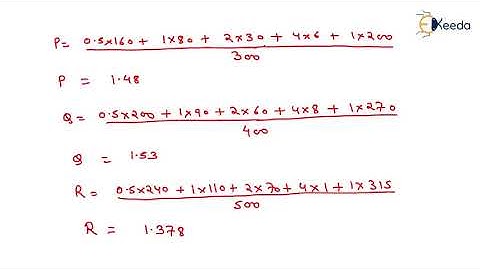 Ekeeda
P= 0.5x160 + 1x80 + 2x30 + 4x6 + 1x200
300
P = 1.48
Q= 0.5x200 + 1x90 + 2x60 + 4x8 + 1x270
400
Q = 1.53
R= 0.5x240 + 1x110 + 2x70 + 4x1 + 1x315
500
R = 1.378